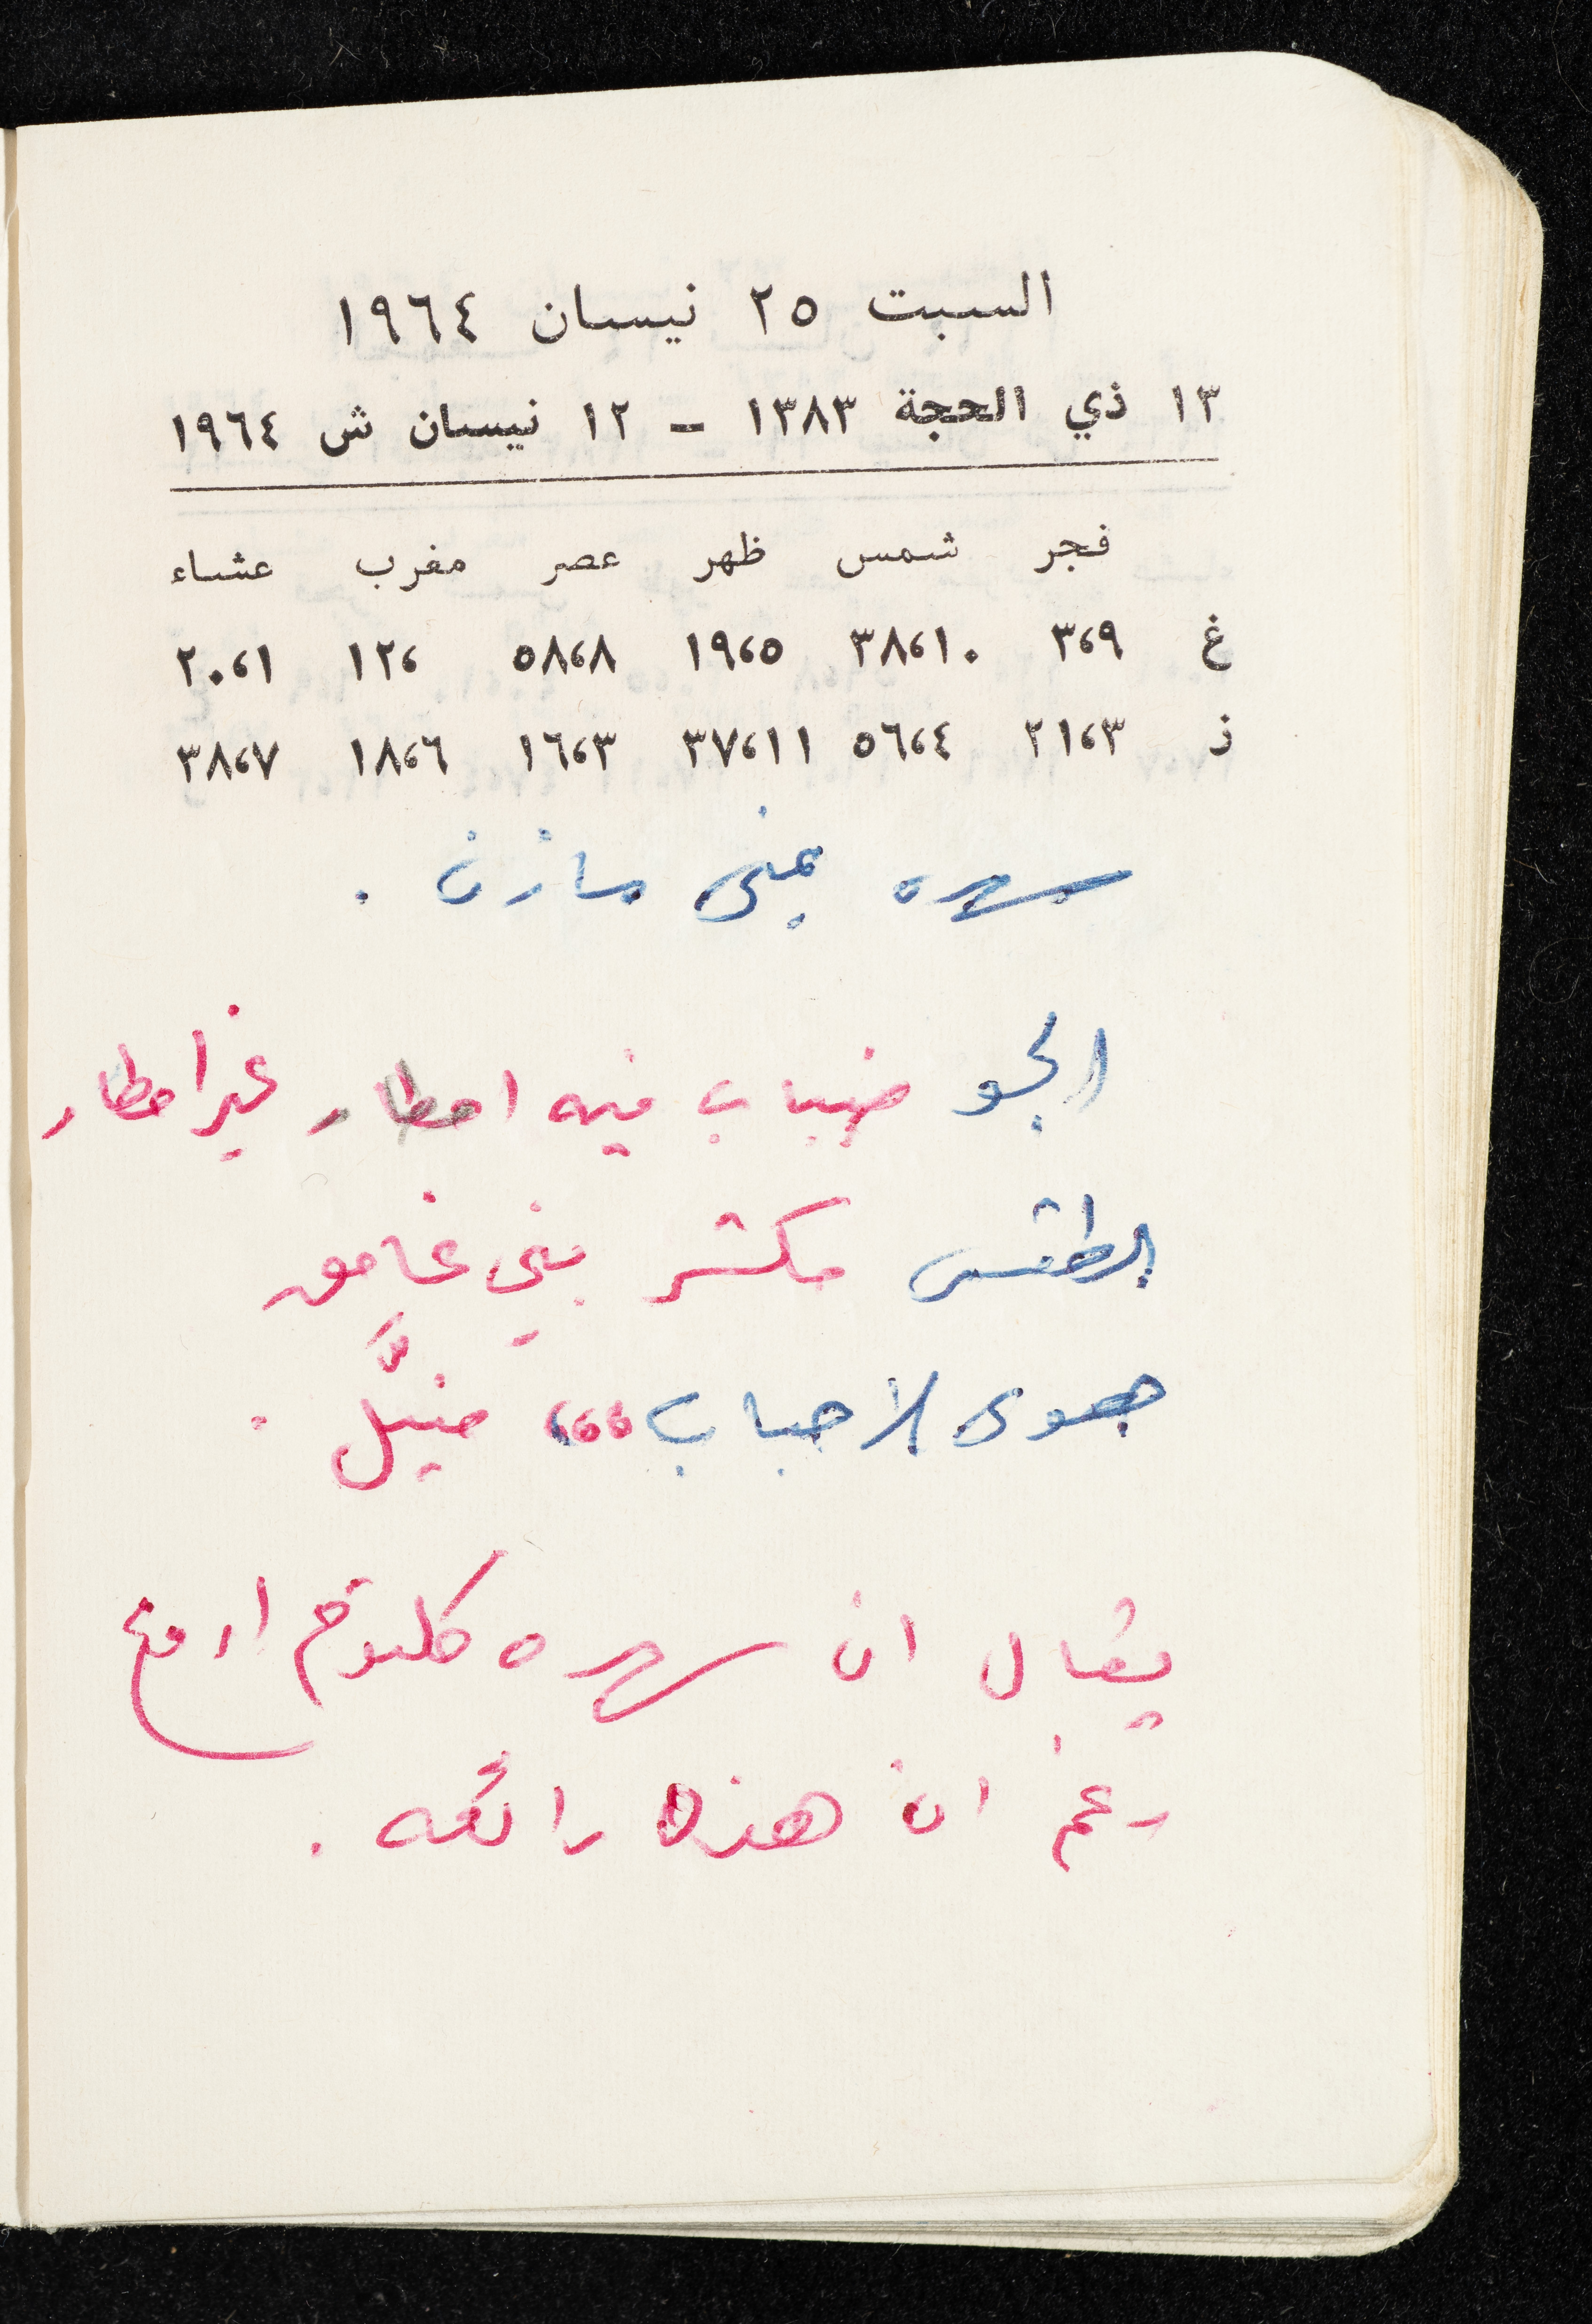 السبت ٢٥ نيسان ١٩٦٤
١٣ ذي الحجة ١٣٨٣ - ١٢ نيسان ش ١٩٦٤
فجر شمس ظهر عصر مغرب عشاء
غ ٣،٩ ٣٨،١٠ ١٩،٥ ٥٨،٨ ١٢، ٢٠،١
ز ٢١،٣ ٥٦،٤ ٣٧،١١ ١٦،٣ ١٨،٦ ٣٨،٧
سهره يمنى مازن .
الجو ضباب فيه امطار غير امطار
الطقس مكشر بني غامق
هوى الاحباب،،، منيَّل .
يقال ان سهره كلثوم اروع
رغم ان هذه رائعه .